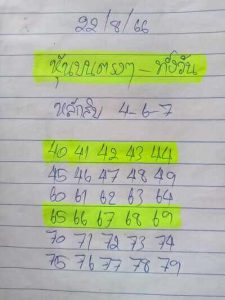 22/8/66
หุ้นบนตรงๆ - ทั้งวัน
หลักสิบ 4-6-7
40 41 42 43 44
45 46 47 48 49
60 61 62 63 64
65 66 67 68 69
70 71 72 73 74
75 76 77 78 79